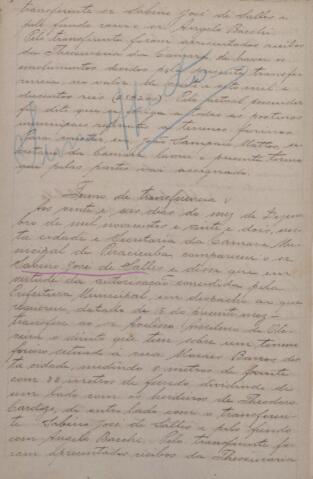 transferente sr Sabino José de Salles e
pelo fundo com o sr. Angelo Bacchi.
Pelo transferente foram apresentados recibos
da Thesouraria da Camara de haver os
emolumentos devidos pela presente transfe-
rencia no valor de e oito mil e
duzentos reis Pelo actual possuidor
foi dito que se obriga a todas as posturas
municipaes referente a terrenos foreiros
Para constar eu, João Sampaio Mattos, se-
cretario da Camara lavrei o presente termo
que pelas partes vae assignado.
Termo de transferencia
Aos vinte e seis dias do mez de Dezem-
bro de mil novecentos e vinte e dois, nes-
ta cidade e Secretaria da Camara Mu-
nicipal de Piracicaba compareceu o sr
Sabino José de Salles e disse que em
virtude da autorisação concedida pela
Prefeitura Municipal, em despacho ao que
requereu, datado de 15 do presente mez
transfere ao sr
o direito que tem sobre um terreno
foreiro situado á rua Moraes Barros des-
ta cidade, medindo 6 metros de frente
com 88 metros de fundo, dividindo de
um lado com os herdeiros de Theodoro
Cardozo, de outro lado com o transferen-
te Sabino José de Salles e pelo fundo
com Angelo Bacchi. Pelo transferente fo-
ram apresentados recibos da Thesouraria